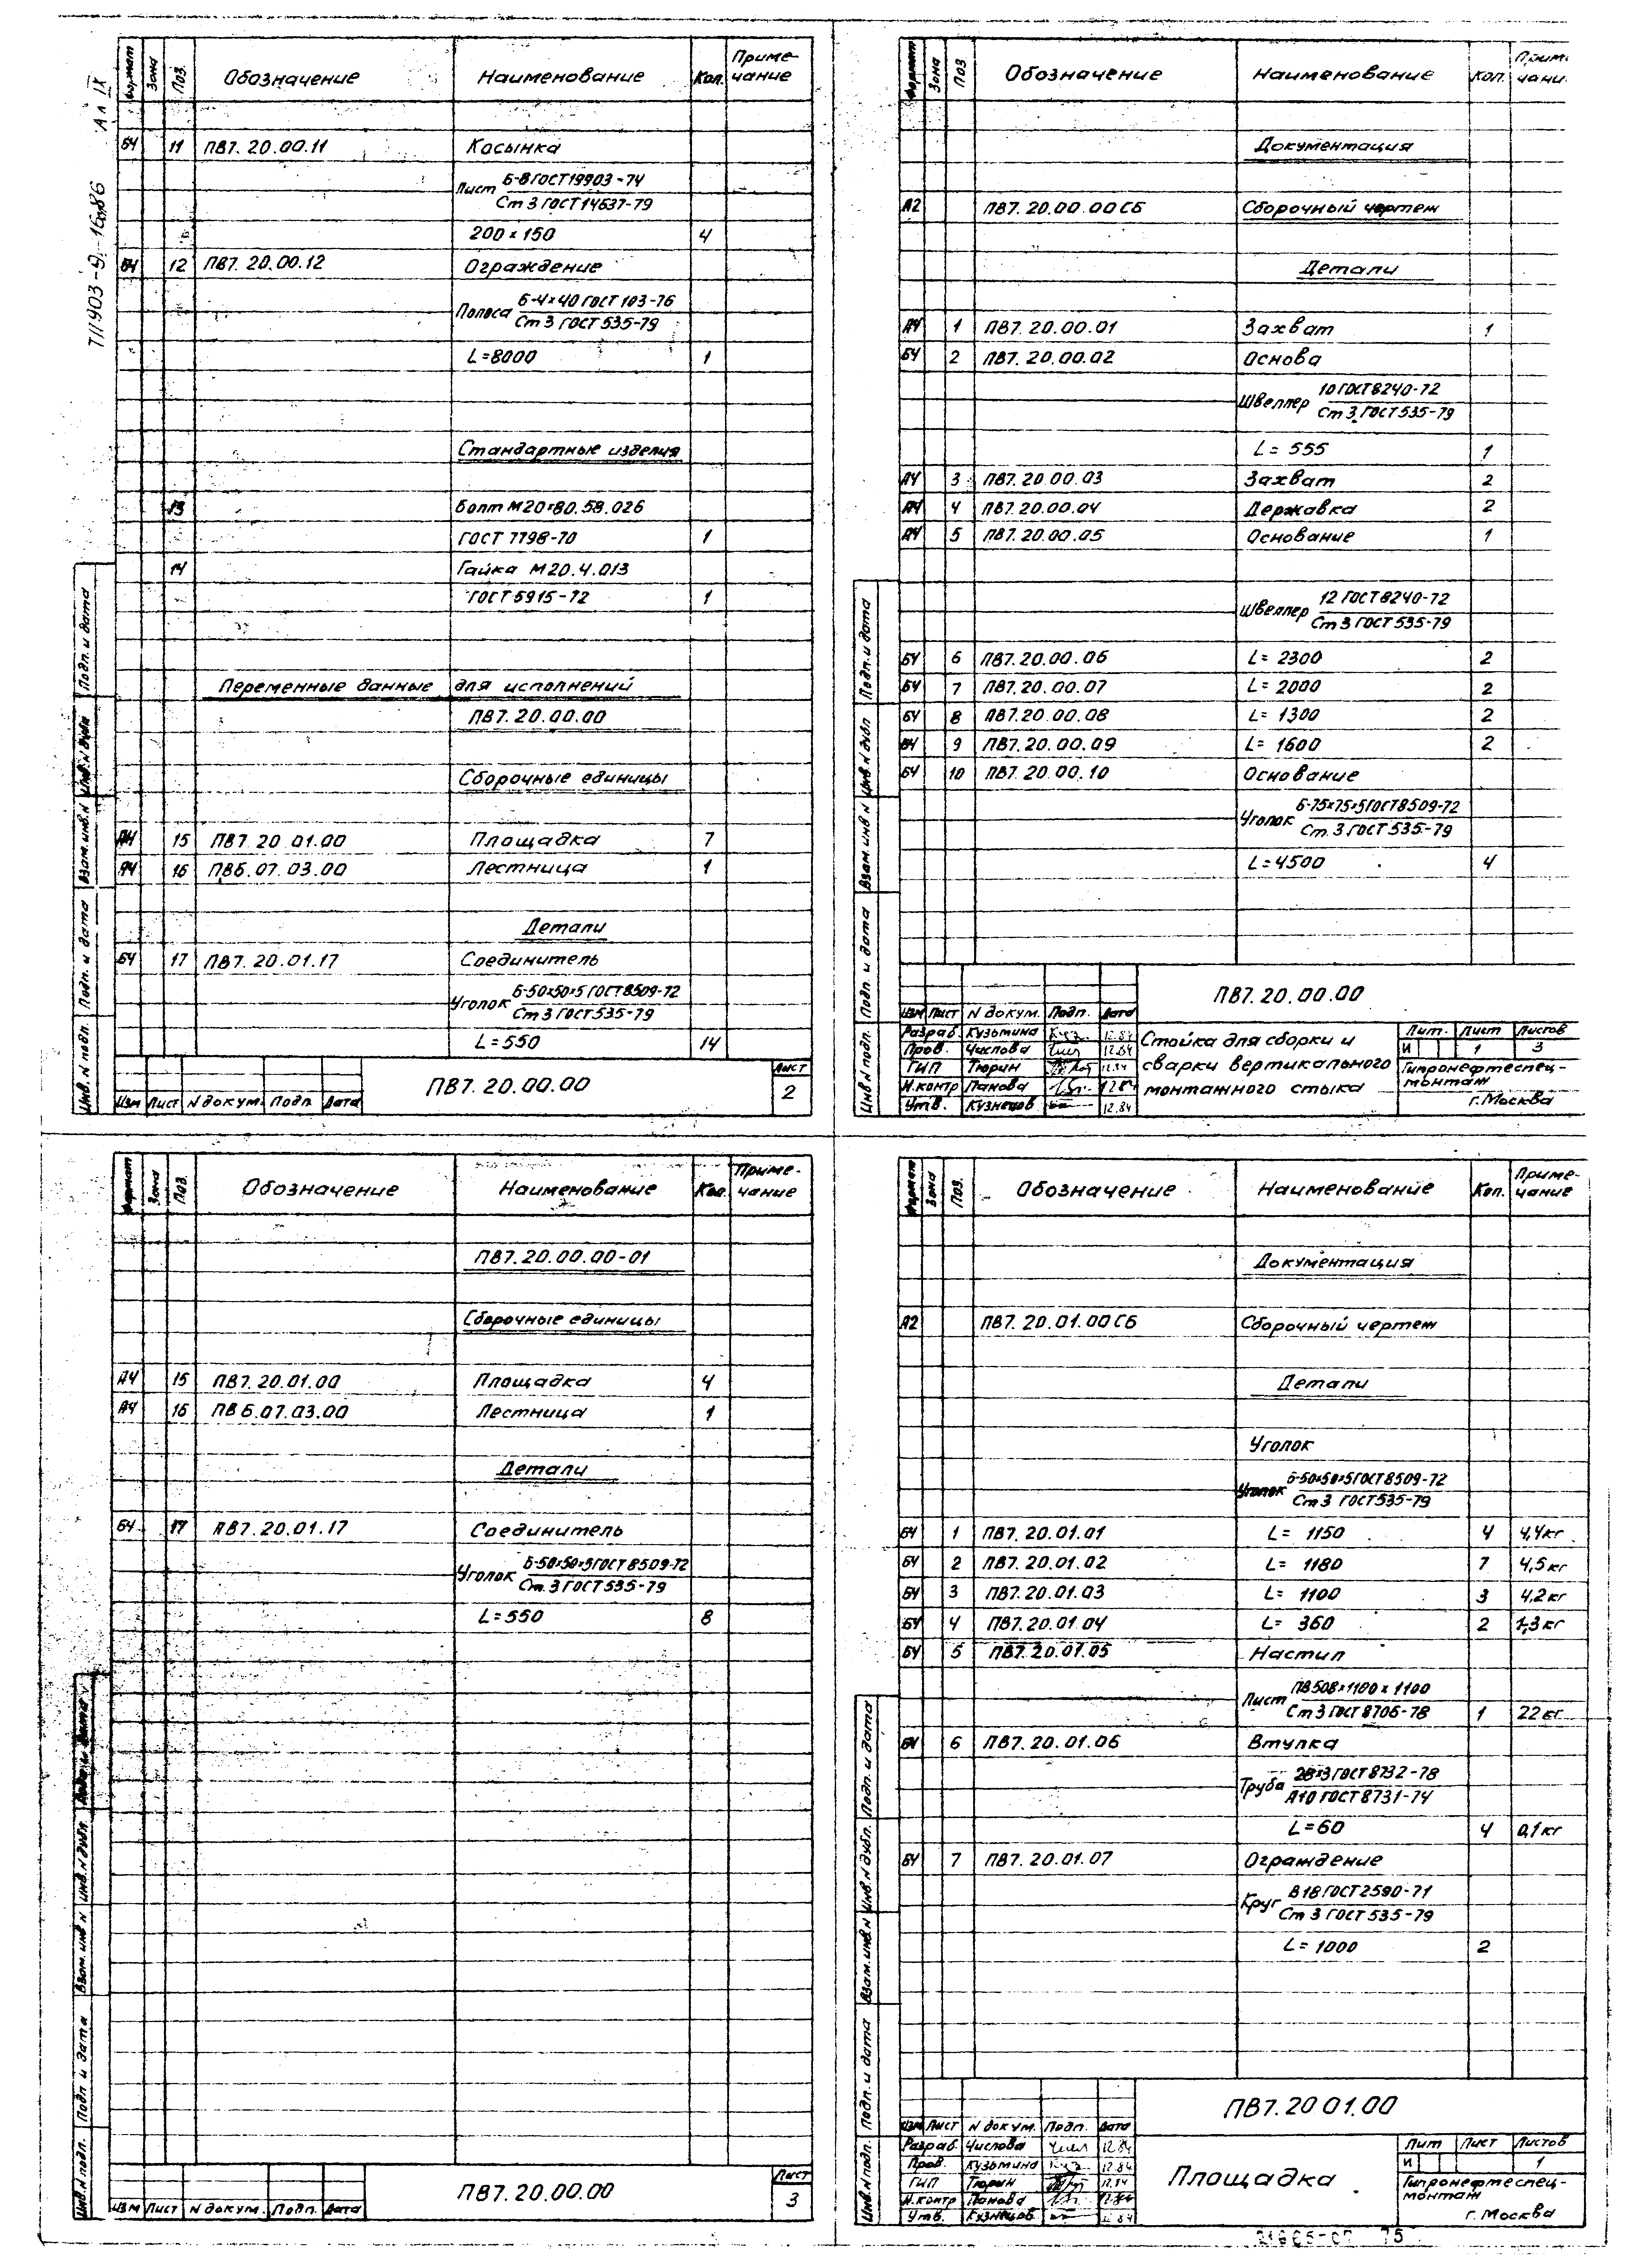 ТП903-9-16.86 Ал IX
Формат Зона Поз. Обозначение Наименование Кол. Приме-
чание
БЧ 11 ПВ7.20.00.11 Косынка
Лист Б-8 ГОСТ 19903-74
Ст 3 ГОСТ 14637-79
200×150 4
БЧ 12 ПВ7.20.00.12 Ограждение
Полоса Б-4×40 ГОСТ 103-76
Ст 3 ГОСТ 535-79
L=8000 1
Стандартные изделия
13 Болт М20×80.58.026
ГОСТ 7798-70 1
14 Гайка М20.4.013
ГОСТ 5915-72 1
Переменные данные для исполнений
ПВ7.20.00.00
Сборочные единицы
А4 15 ПВ7.20.01.00 Площадка 7
А4 16 ПВ6.07.03.00 Лестница 1
Детали
БЧ 17 ПВ7.20.01.17 Соединитель
Уголок Б-50×50×5 ГОСТ 8509-72
Ст 3 ГОСТ 535-79
L=550 14
Инв. N подл. Подп. и дата Взам. инв. N Инв. N дубл Подп. и дата
Изм Лист N докум. Подп. Дата
ПВ7.20.00.00
Лист
2
Формат Зона Поз Обозначение Наименование Кол.
Документация
А2 ПВ7.20.00.00СБ Сборочный чертеж
Детали
А4 1 ПВ7.20.00.01 Захват 1
БЧ 2 ПВ7.20.00.02 Основа
Швеллер 10 ГОСТ 8240-72
Ст 3 ГОСТ 535-79
L= 555 1
А4 3 ПВ7.20.00.03 Захват 2
А4 4 ПВ7.20.00.04 Державка 2
А4 5 ПВ7.20.00.05 Основание 1
Швеллер 12 ГОСТ 8240-72
Ст 3 ГОСТ 535-79
БЧ 6 ПВ7.20.00.06 L= 2300 2
БЧ 7 ПВ7.20.00.07 L= 2000 2
БЧ 8 ПВ7.20.00.08 L= 1300 2
БЧ 9 ПВ7.20.00.09 L= 1600 2
БЧ 10 ПВ7.20.00.10 Основание
Уголок Б-75×75×5 ГОСТ 8509-72
Ст. 3 ГОСТ 535-79
L=4500 4
Инв. N подл. Подп. и дата Взам инв N Инв. N дубл Подп. и дата
ПВ7.20.00.00
Изм Лист N докум. Подп. Дата
Разраб. Кузьмина 12.84
Пров. Числова 12.84
ГИП Тюрин 12.84
Н.контр Панова 12.84
Утв. Кузнецов 12.84
Стойка для сборки и
сварки вертикального
монтажного стыка
Лит. Лист Листов
И 1 3
Гипронефтеспец-
монтаж
г. Москва
Формат Зона Поз. Обозначение Наименование Кол. Приме-
чание
ПВ7.20.00.00-01
Сборочные единицы
А4 15 ПВ7.20.01.00 Площадка 4
А4 16 ПВ6.07.03.00 Лестница 1
Детали
БЧ 17 ПВ7.20.01.17 Соединитель
Уголок Б-50×50×5 ГОСТ 8509-72
Ст. 3 ГОСТ 535-79
L=550 8
Инв. N подл. Подп и дата Взам. инв N Инв. N дубл Подп. и дата
Изм Лист N докум. Подп. Дата
ПВ7.20.00.00
Лист
3
Формат Зона Поз. Обозначение Наименование Кол. Приме-
чание
Документация
А2 ПВ7.20.01.00СБ Сборочный чертеж
Детали
Уголок
Уголок Б-50×50×5 ГОСТ 8509-72
Ст 3 ГОСТ 535-79
БЧ 1 ПВ7.20.01.01 L= 1150 4 4,4кг
БЧ 2 ПВ7.20.01.02 L= 1180 7 4,5кг
БЧ 3 ПВ7.20.01.03 L= 1100 3 4,2кг
БЧ 4 ПВ7.20.01.04 L= 360 2 1,3кг
БЧ 5 ПВ7.20.01.05 Настил
Лист ПВ508×1100×1100
Ст 3 ГОСТ 8706-78 1 22кг
БЧ 6 ПВ7.20.01.06 Втулка
Труба 28×3 ГОСТ 8732-78
А10 ГОСТ 8731-74
L=60 4 0,1кг
БЧ 7 ПВ7.20.01.07 Ограждение
Круг В18 ГОСТ 2590-71
Ст 3 ГОСТ 535-79
L= 1000 2
Инв. N подл. Подп. и дата Взам. инв. N Инв. N дубл. Подп. и дата
ПВ7.20 01.00
Изм Лист N докум. Подп. Дата
Разраб. Числова 12.84
Пров. Кузьмина 12.84
ГИП Тюрин 12.84
Н.контр Панова 12.84
Утв. Кузнецов 12.84
Площадка
Лит Лист Листов
И 1
Гипронефтеспец-
монтаж
г. Москва
75